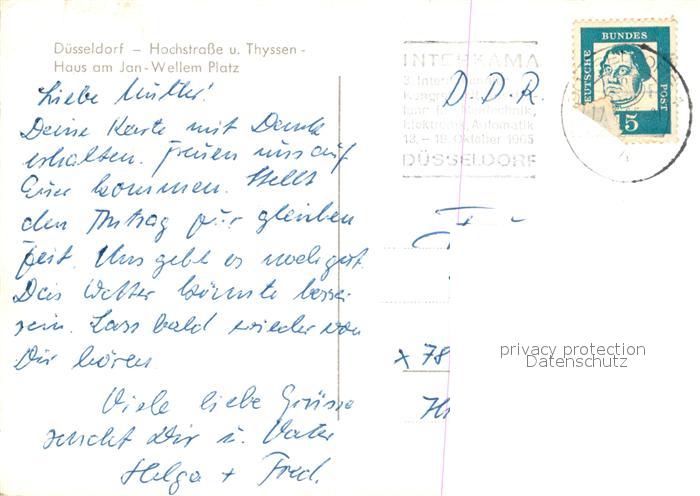 Düsseldorf – Hochstraße u. Thyssen-
Haus am Jan-Wellem Platz
Liebe Mutter!
Deine Karte mit Dank
erhalten. Freuen uns auf
Euer kommen. Stellt
den Antrag zur gleichen
Zeit. Uns geht es noch gut.
Das Wetter könnte besser
sein. Lass bald wieder von
Dir hören
Viele liebe Grüsse
sendet Dir u. Vater
Helga + Fred.
INTERKAMA
3. Inter
Kongr
Automatik
13. – 19. Oktober 1965
DÜSSELDORF
D.D.R.
DEUTSCHE BUNDES POST
15
x 78
privacy protection
Datenschutz